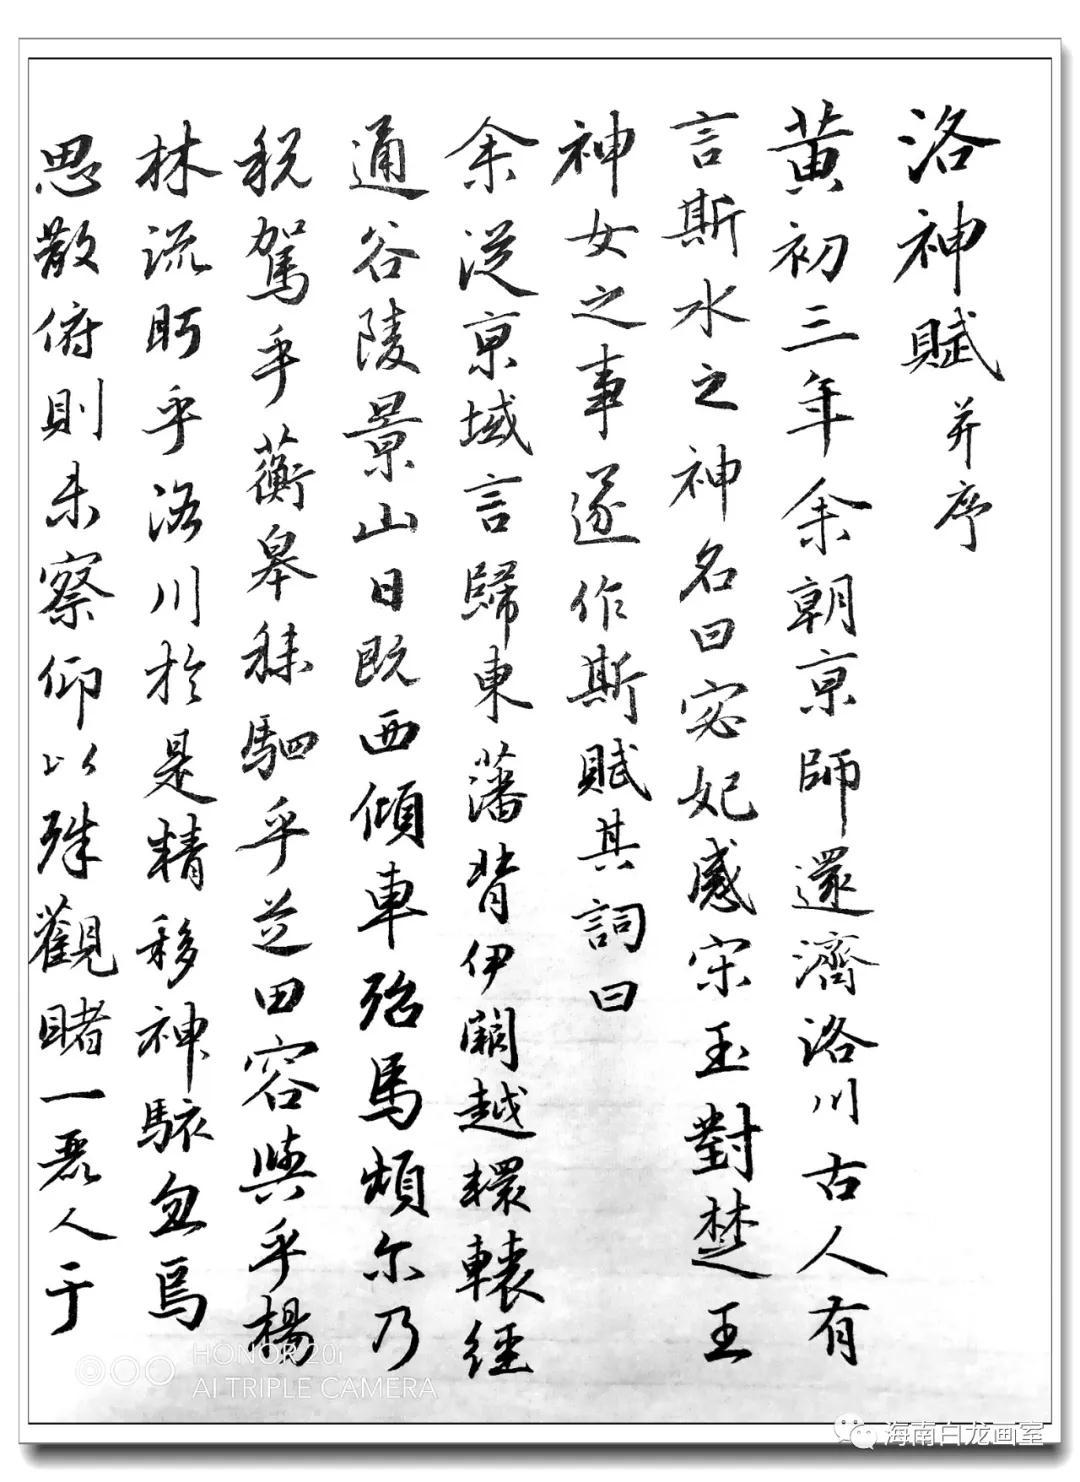 洛神賦并序
黃初三年余朝京師還濟洛川古人有
言斯水之神名曰宓妃感宋玉對楚王
神女之事遂作斯賦其詞曰
余從京域言歸東藩背伊闕越轘轅經
通谷陵景山日既西傾車殆馬煩尔乃
稅駕乎蘅皋秣駟乎芝田容與乎楊
林流眄乎洛川於是精移神駭忽焉
思散俯則未察仰以殊觀睹一麗人于
HONOR 20i
AI TRIPLE CAMERA
海南白龙画室